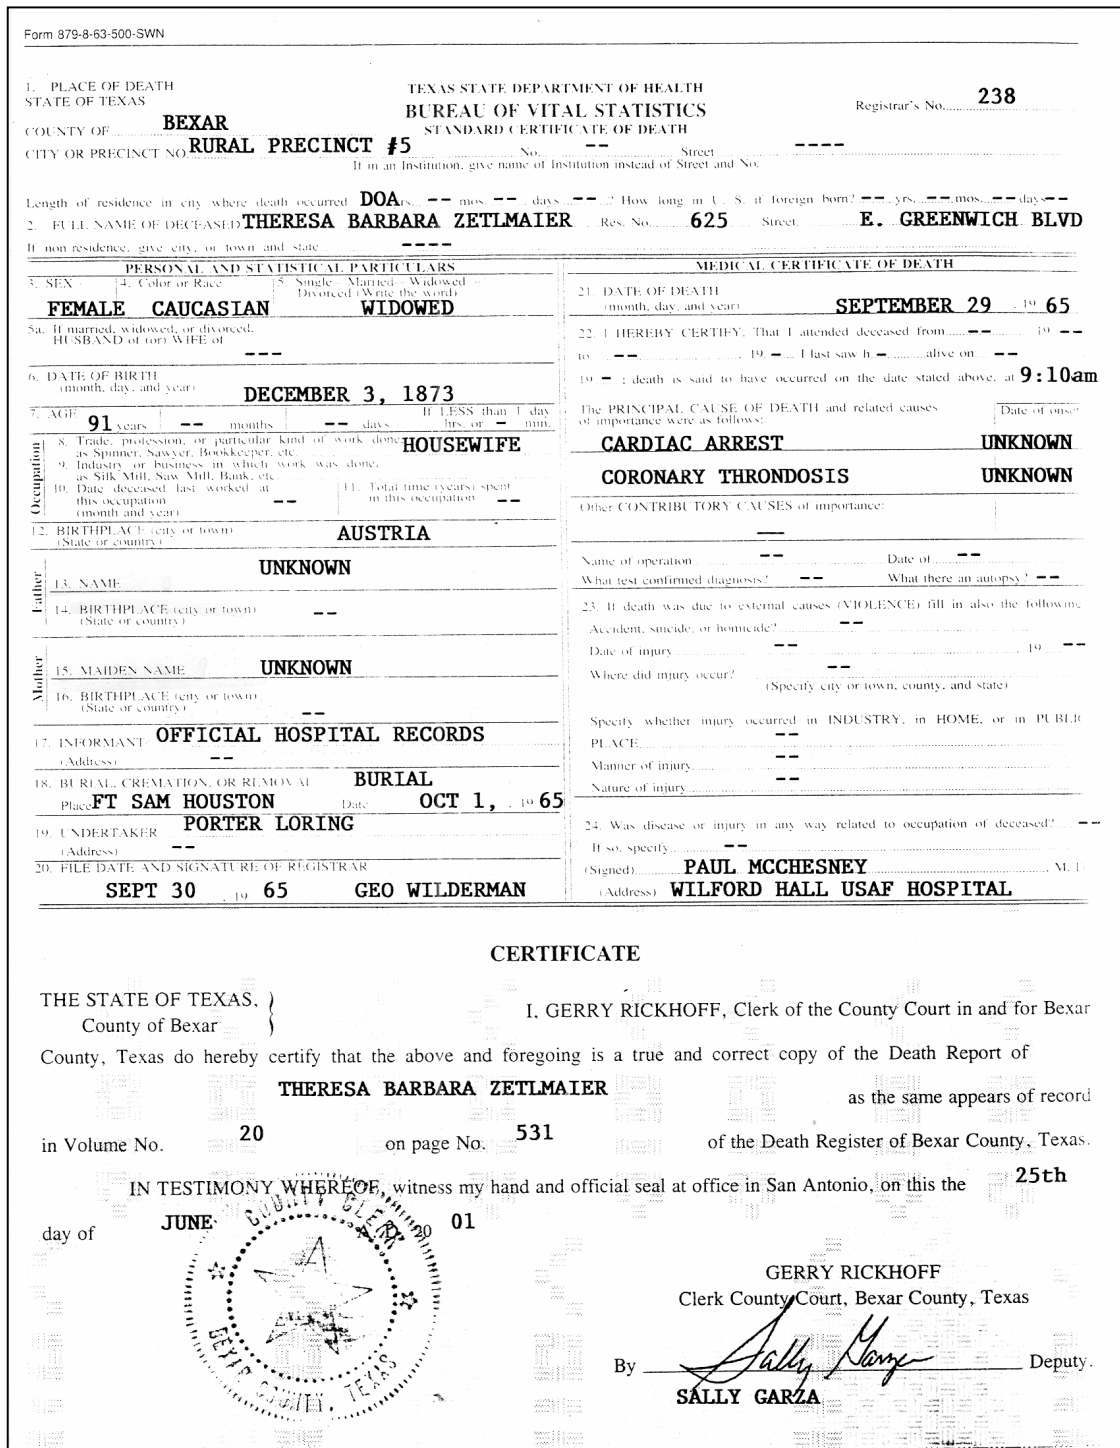 Form 879-8-63-500-SWN
1. PLACE OF DEATH
STATE OF TEXAS
COUNTY OF BEXAR
CITY OR PRECINCT NO. RURAL PRECINCT #5 No. -- Street ----
TEXAS STATE DEPARTMENT OF HEALTH
BUREAU OF VITAL STATISTICS
STANDARD CERTIFICATE OF DEATH
Registrar's No. 238
If in an Institution, give name of Institution instead of Street and No.
Length of residence in city where death occurred DOA rs. -- mos. -- days -- ? How long in U. S. if foreign born? -- yrs. -- mos. -- days --
2. FULL NAME OF DECEASED THERESA BARBARA ZETLMAIER Res. No. 625 Street E. GREENWICH BLVD
If non residence, give city, or town and state ----
PERSONAL AND STATISTICAL PARTICULARS
3. SEX 4. Color or Race 5. Single - Married - Widowed - Divorced (Write the word)
FEMALE CAUCASIAN WIDOWED
5a. If married, widowed, or divorced,
HUSBAND of (or) WIFE of
---
6. DATE OF BIRTH
(month, day, and year) DECEMBER 3, 1873
7. AGE If LESS than 1 day
91 years -- months -- days hrs. or - min.
Occupation
8. Trade, profession, or particular kind of work done HOUSEWIFE
as Spinner, Sawyer, Bookkeeper, etc.
9. Industry or business in which work was done,
as Silk Mill, Saw Mill, Bank, etc.
10. Date deceased last worked at this occupation (month and year) --
11. Total time (years) spent in this occupation --
12. BIRTHPLACE (city or town) AUSTRIA
(State or country)
Father
UNKNOWN
13. NAME
14. BIRTHPLACE (city or town) --
(State or country)
Mother
15. MAIDEN NAME UNKNOWN
16. BIRTHPLACE (city or town)
(State or country) --
17. INFORMANT OFFICIAL HOSPITAL RECORDS
(Address) --
18. BURIAL, CREMATION, OR REMOVAL BURIAL
Place FT SAM HOUSTON Date OCT 1, , 19 65
19. UNDERTAKER PORTER LORING
(Address) --
20. FILE DATE AND SIGNATURE OF REGISTRAR
SEPT 30 , 19 65 GEO WILDERMAN
MEDICAL CERTIFICATE OF DEATH
21. DATE OF DEATH
(month, day, and year) SEPTEMBER 29 , 19 65
22. I HEREBY CERTIFY, That I attended deceased from -- 19 --
to -- , 19 - I last saw h. - alive on --
19 - ; death is said to have occurred on the date stated above, at 9:10am
The PRINCIPAL CAUSE OF DEATH and related causes Date of onset
of importance were as follows:
CARDIAC ARREST UNKNOWN
CORONARY THRONDOSIS UNKNOWN
Other CONTRIBUTORY CAUSES of importance:
--
Name of operation -- Date of --
What test confirmed diagnosis? -- What there an autopsy? --
23. If death was due to external causes (VIOLENCE) fill in also the following
Accident, suicide, or homicide? --
Date of injury -- 19 --
Where did injury occur? --
(Specify city or town, county, and state)
Specify whether injury occurred in INDUSTRY, in HOME, or in PUBLIC
PLACE --
Manner of injury --
Nature of injury --
24. Was disease or injury in any way related to occupation of deceased? --
If so, specify --
(Signed) PAUL MCCHESNEY M. D
(Address) WILFORD HALL USAF HOSPITAL
CERTIFICATE
THE STATE OF TEXAS,
County of Bexar
I, GERRY RICKHOFF, Clerk of the County Court in and for Bexar
County, Texas do hereby certify that the above and foregoing is a true and correct copy of the Death Report of
THERESA BARBARA ZETLMAIER as the same appears of record
in Volume No. 20 on page No. 531 of the Death Register of Bexar County, Texas.
IN TESTIMONY WHEREOF, witness my hand and official seal at office in San Antonio, on this the 25th
day of JUNE A. D. 20 01
COUNTY CLERK
BEXAR COUNTY, TEXAS
GERRY RICKHOFF
Clerk County Court, Bexar County, Texas
By Sally Garza Deputy.
SALLY GARZA